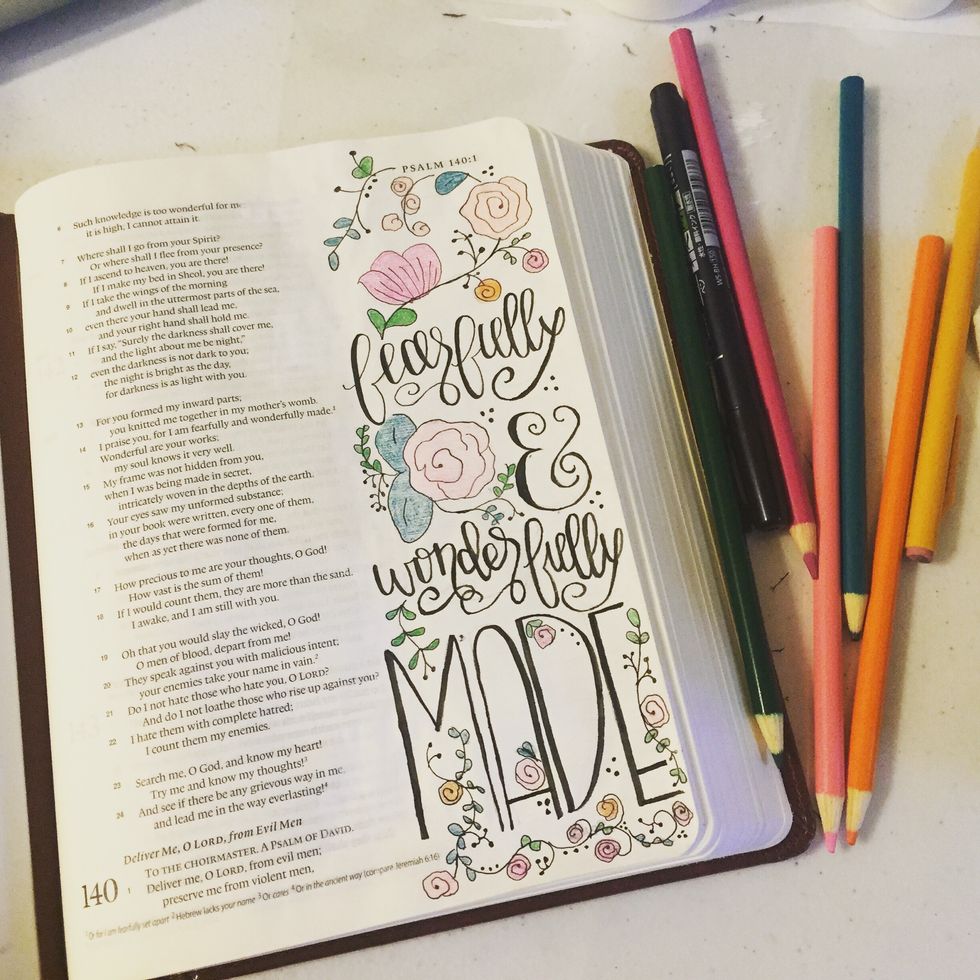 PSALM 140:1
6 Such knowledge is too wonderful for
it is high; I cannot attain it.
7 Where shall I go from your Spirit?
Or where shall I flee from your presence?
8 If I ascend to heaven, you are there!
If I make my bed in Sheol, you are there!
9 If I take the wings of the morning
and dwell in the uttermost parts of the sea,
10 even there your hand shall lead me,
and your right hand shall hold me.
11 If I say, "Surely the darkness shall cover me,
and the light about me be night,"
12 even the darkness is not dark to you;
the night is bright as the day,
for darkness is as light with you.
13 For you formed my inward parts;
you knitted me together in my mother's womb.
14 I praise you, for I am fearfully and wonderfully made.1
Wonderful are your works;
my soul knows it very well.
15 My frame was not hidden from you,
when I was being made in secret,
intricately woven in the depths of the earth.
16 Your eyes saw my unformed substance;
in your book were written, every one of them,
the days that were formed for me,
when as yet there was none of them.
17 How precious to me are your thoughts, O God!
How vast is the sum of them!
18 If I would count them, they are more than the sand.
I awake, and I am still with you.
19 Oh that you would slay the wicked, O God!
O men of blood, depart from me!
20 They speak against you with malicious intent;
your enemies take your name in vain.2
21 Do I not hate those who hate you, O LORD?
And do I not loathe those who rise up against you?
22 I hate them with complete hatred;
I count them my enemies.
23 Search me, O God, and know my heart!
Try me and know my thoughts!3
24 And see if there be any grievous way in me,
and lead me in the way everlasting!4
Deliver Me, O LORD, from Evil Men
TO THE CHOIRMASTER. A PSALM OF DAVID.
140 1 Deliver me, O LORD, from evil men;
preserve me from violent men,
1 Or for I am fearfully set apart 2 Hebrew lacks your name 3 Or cares 4 Or in the ancient way (compare Jeremiah 6:16)
fearfully
&
wonderfully
MADE